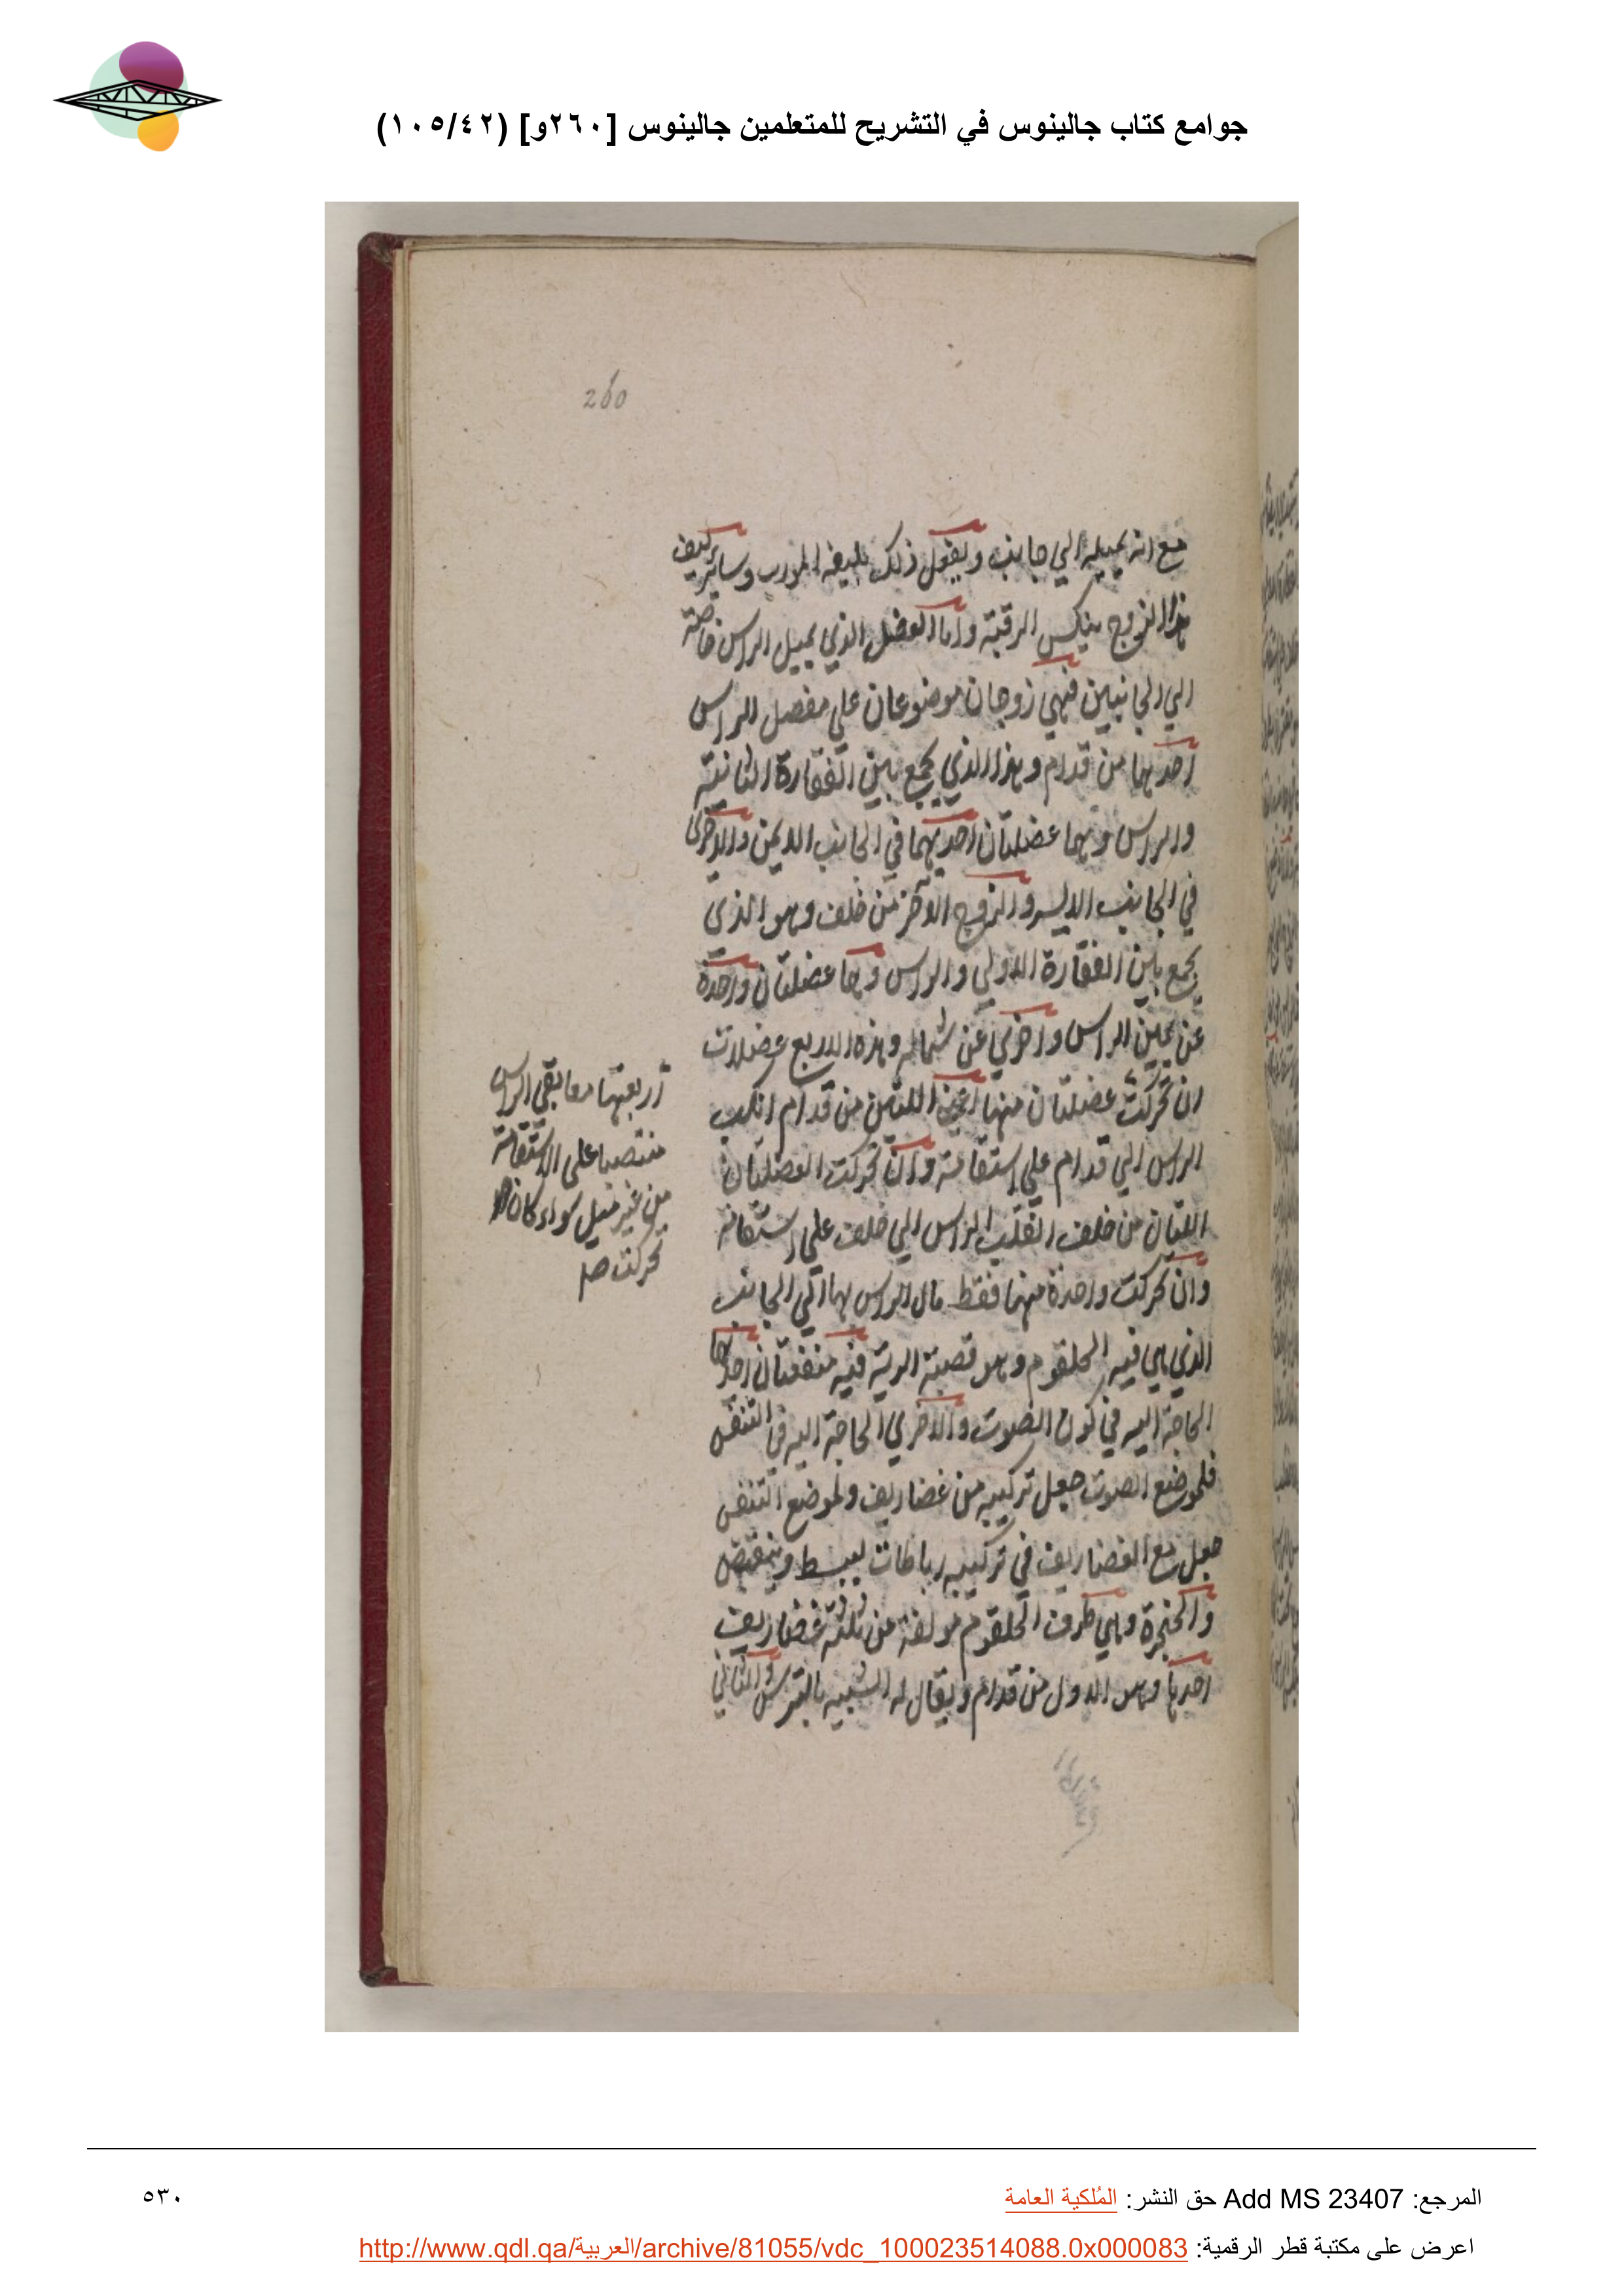 جوامع كتاب جالينوس في التشريح للمتعلمين جالينوس [٢٦٠و] (١٠٥/٤٢)
260
مع انه يميله الي جانب ويفعل ذلك بليفه المورب وساير ليف
هذا الزوج ينكس الرقبة واما العضل الذي يميل الراس خاصة
الي الجانبين فهي زوجان موضوعان علي مفصل الراس
احدهما من قدام وهذا الذي يجمع بين الفقارة الثانية
والراس وهما عضلتان احديهما في الجانب الايمن والاخرى
في الجانب الايسر والزوج الآخر من خلف وهو الذي
يجمع بين الفقارة الاولي والراس وهما عضلتان واحدة
عن يمين الراس واخري عن شماله وهذه الاربع عضلات
ان تحركت عضلتان منها اعني اللتين من قدام انكب
الراس الي قدام علي استقامة وان تحركت العضلتان
اللتان من خلف انقلب الراس الي خلف علي استقامة
وان تحركت واحدة منهما فقط مال الراس بها الي الجانب
الذي هي فيه الحلقوم وهو قصبة الرية فيه منفعتان احديهما
الحاجة اليه في كون الصوت والاخري الحاجة اليه في التنفس
فلموضع الصوت جعل تركيبه من غضاريف ولموضع التنفس
جعل مع الغضاريف في تركيبه رباطات ينبسط وينقبض
والحنجرة وهي طرف الحلقوم مولفة من ثلثة غضاريف
احدها وهو الاول من قدام ويقال له الشبيه بالترس والثاني
أربعتها معا بقي الراس
منتصبا على الاستقامة
من غير ميل سواء كان
تحركت صح
المرجع: Add MS 23407 حق النشر: المُلكية العامة
٥٣٠
اعرض على مكتبة قطر الرقمية: http://www.qdl.qa/العربية/archive/81055/vdc_100023514088.0x000083